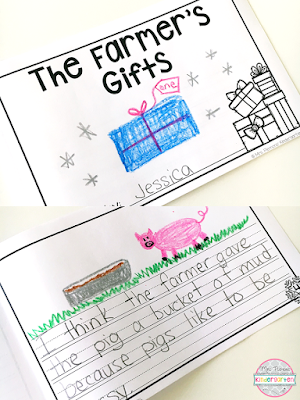 The Farmer's
Gifts
one
Jessica
I think the farmer gave
the pig a bucket of mud
because pigs like to be
kindergarten